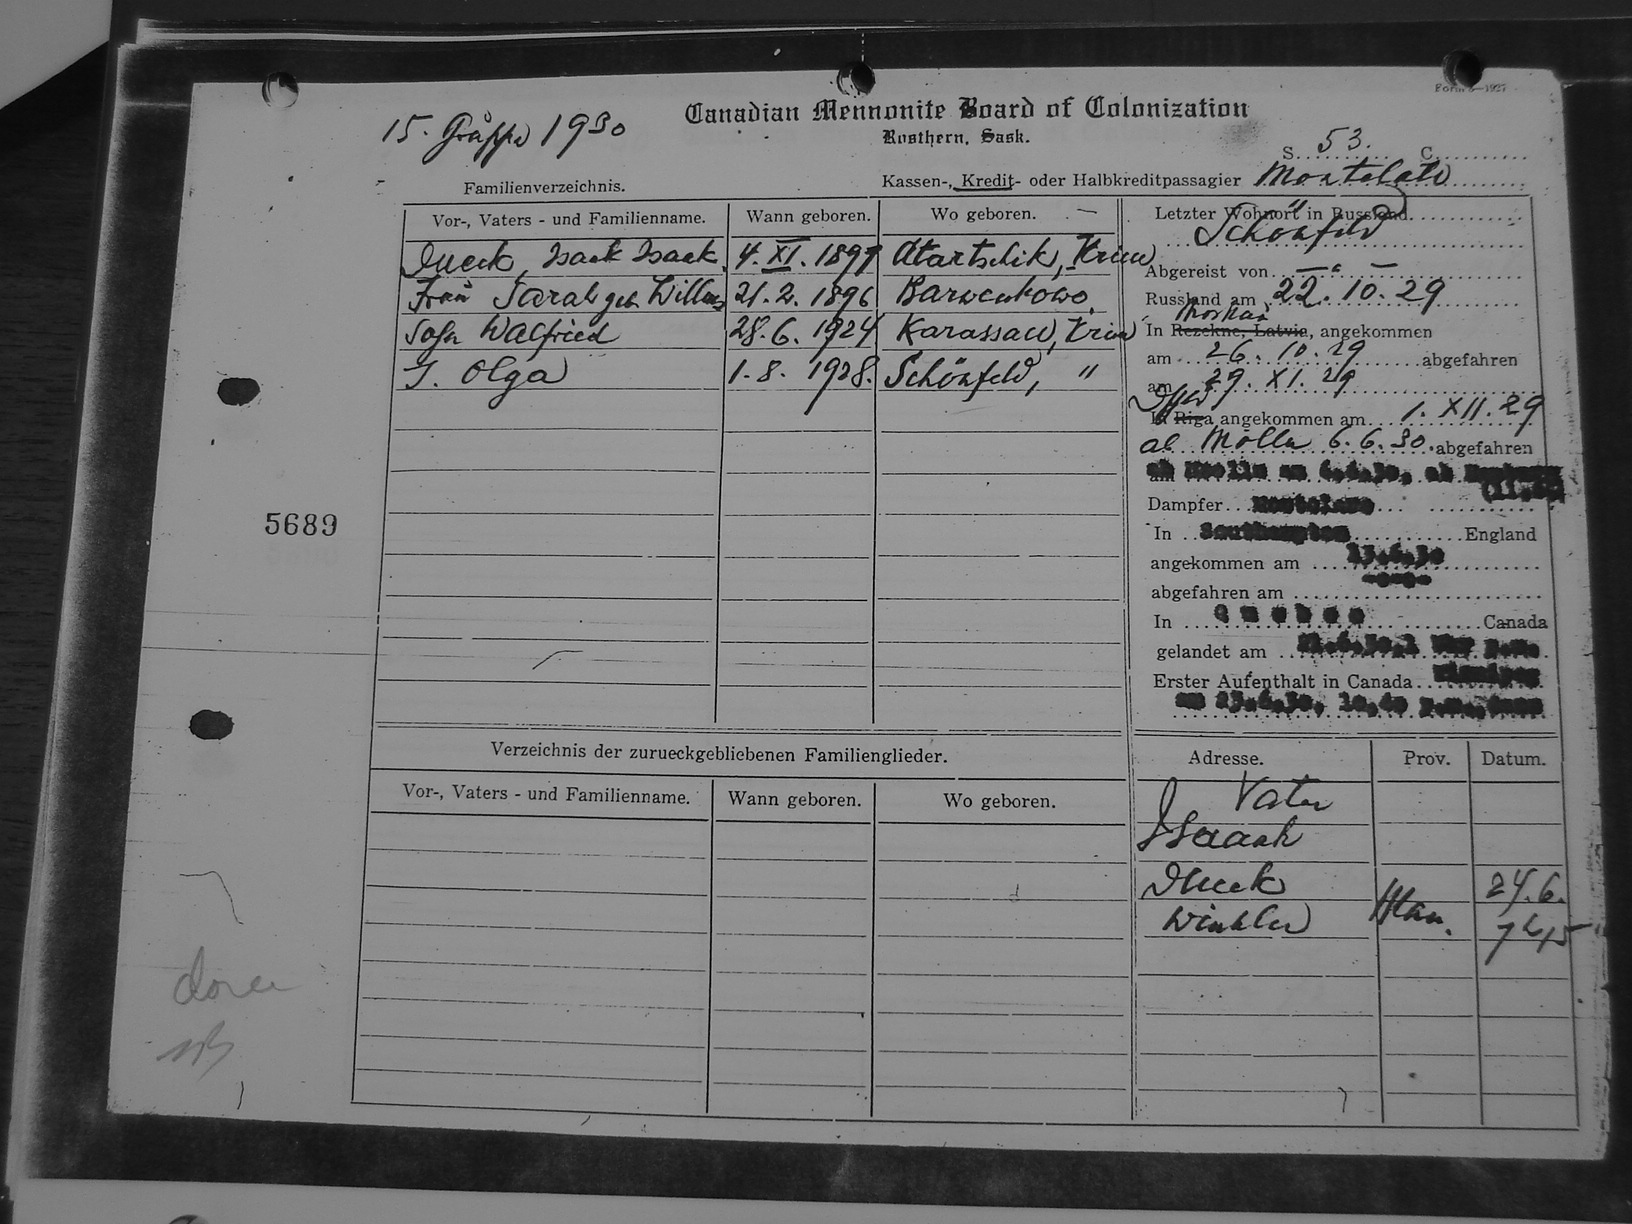 Form 5—1927
Canadian Mennonite Board of Colonization
Rosthern, Sask.
15. Gruppe 1930
S. 53. C.
Familienverzeichnis.
Kassen-, Kredit- oder Halbkreditpassagier
Vor-, Vaters - und Familienname. Wann geboren. Wo geboren. —
Dueck, Isaak Isaak. 4. XI. 1897 Atartschik, Krim
Frau Sarah geb. Willms 21. 2. 1896 Barwenkowo
Sohn Walfried 28. 6. 1924 Karassan, Krim
T. Olga 1. 8. 1928. Schönfeld, "
Letzter Wohnort in Russland
Schönfeld
Abgereist von — " —
Russland am 22. 10. 29
Moskau
In Rezekne, Latvia, angekommen
am 26. 10. 29 abgefahren
am 29. XI. 29
In Riga angekommen am 1. XII. 29
ab Mölln 6. 6. 30. abgefahren
am ab Moelln am 6.6.30, ab Hamburg
Dampfer Montclare
In Southampton England
angekommen am 13.6.30
abgefahren am -"-"-
In Quebec Canada
gelandet am
Erster Aufenthalt in Canada Winnipeg
am 23.6.30, 10,40 p.m.
5689
Verzeichnis der zurueckgebliebenen Familienglieder.
Vor-, Vaters - und Familienname. Wann geboren. Wo geboren.
Adresse. Prov. Datum.
Vater
Isaak
Dueck
Winkler Man. 24. 6.